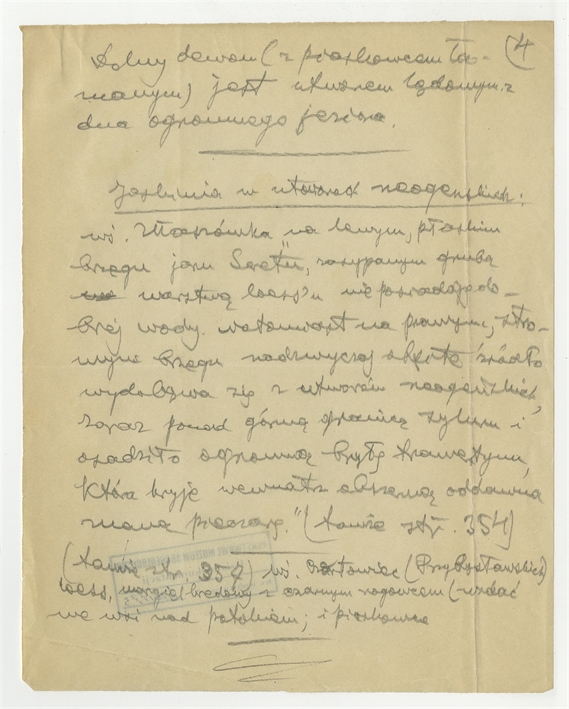 (4
Dolny dewon (z piaskowcem tra-
manym) jest utworem lądowym z
dna ogromnego jeziora.
Jaskinia w utworach neogeńskich:
wś. Maszówka na lewym, płaskim
brzegu jaru Seretu, zasypanym grubą
warstwą loess'u nie posiada do-
brej wody. natomiast na prawym, stro-
mym brzegu nadzwyczaj obfite źródło
wydobywa się z utworów neogeńskich,
zaraz ponad górną granicą syluru i
osadziło ogromną bryłę trawertynu,
która kryje wewnątrz obszerną oddawna
znaną pieczarę." (tamże str. 354)
(tamże str. 354) wś. (Przybysławskich)
loess, margiel kredowy z czarnym rogowcem (widać
we wsi nad potokiem; i piaskowce